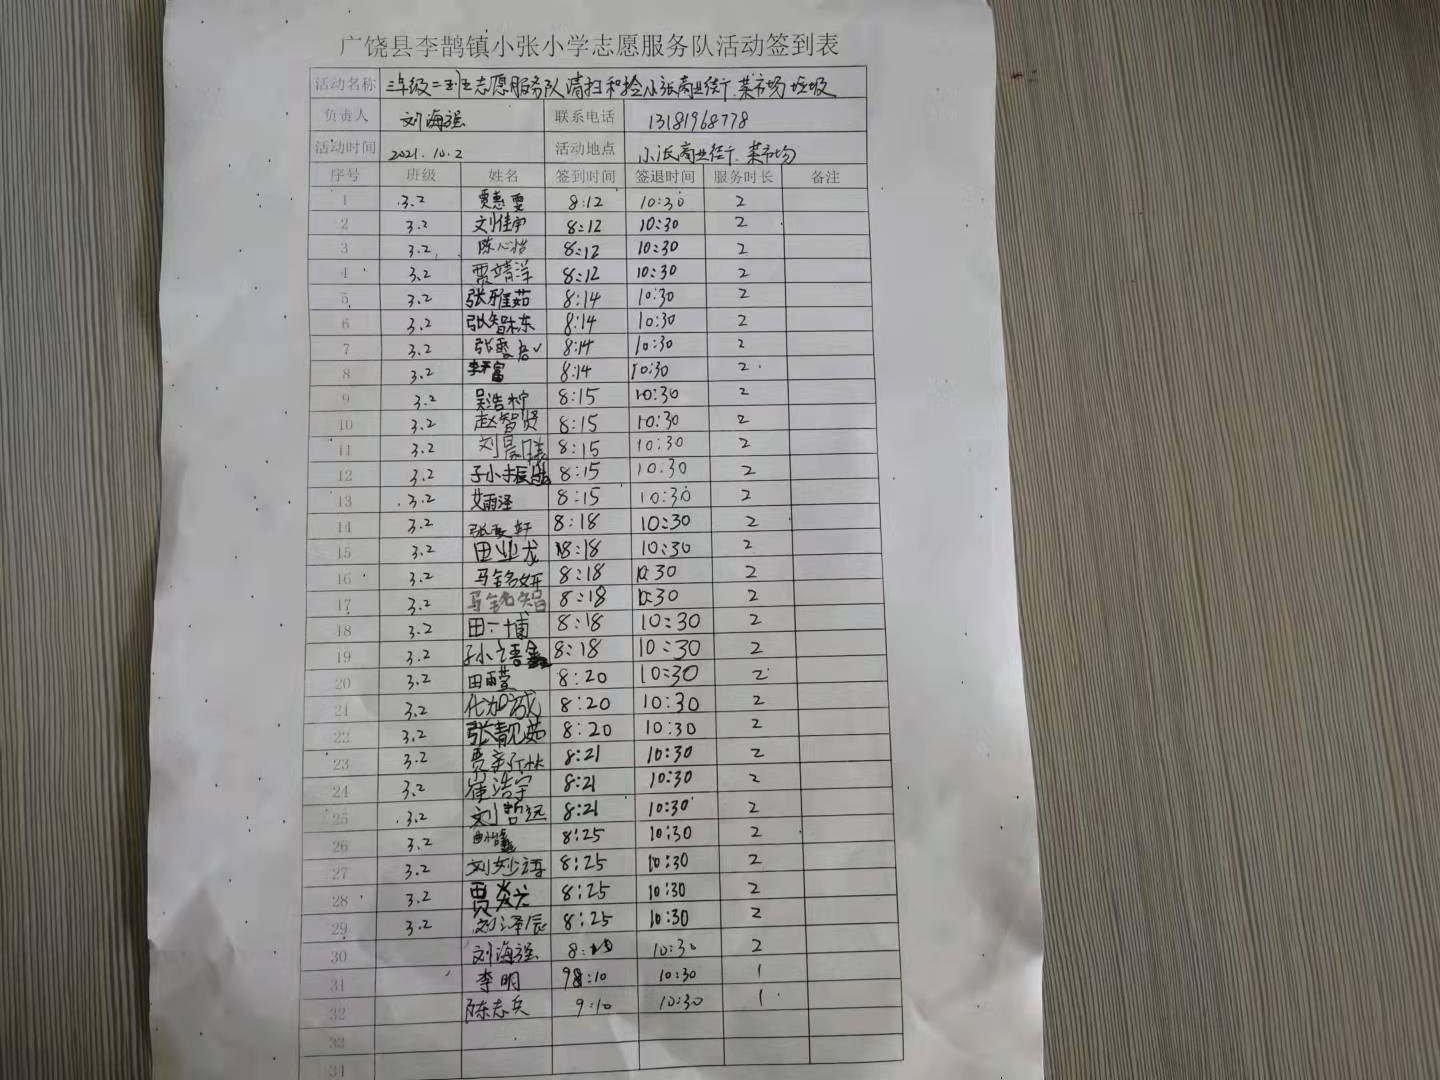 广饶县李鹊镇小张小学志愿服务队活动签到表
活动名称 三年级二班志愿服务队清扫和捡小张商业街、菜市场垃圾
负责人 刘海强 联系电话 13181968778
活动时间 2021.10.2 活动地点 小张商业街、菜市场
序号 班级 姓名 签到时间 签退时间 服务时长 备注
1 3.2 贾惠雯 8:12 10:30 2
2 3.2 刘佳 8:12 10:30 2
3 3.2 陈心怡 8:12 10:30 2
4 3.2 贾靖洋 8:12 10:30 2
5 3.2 张雅茹 8:14 10:30 2
6 3.2 张智 8:14 10:30 2
7 3.2 张雯 8:14 10:30 2
8 3.2 李 富 8:14 10:30 2
9 3.2 吴浩柠 8:15 10:30 2
10 3.2 赵智贤 8:15 10:30 2
11 3.2 刘 8:15 10:30 2
12 3.2 孙振 8:15 10:30 2
13 3.2 艾雨泽 8:15 10:30 2
14 3.2 张 轩 8:18 10:30 2
15 3.2 田业龙 8:18 10:30 2
16 3.2 马铭妍 8:18 10:30 2
17 3.2 马铭智 8:18 10:30 2
18 3.2 田 博 8:18 10:30 2
19 3.2 孙语鑫 8:18 10:30 2
20 3.2 田雨萱 8:20 10:30 2
21 3.2 8:20 10:30 2
22 3.2 张靓茹 8:20 10:30 2
23 3.2 贾 8:21 10:30 2
24 3.2 崔浩宇 8:21 10:30 2
25 3.2 刘哲远 8:21 10:30 2
26 3.2 8:25 10:30 2
27 3.2 刘妙语 8:25 10:30 2
28 3.2 贾 8:25 10:30 2
29 3.2 刘泽辰 8:25 10:30 2
30 刘海强 10:30 2
31 李明 10:30 1
32 陈志兵 9:10 10:30 1
33
34